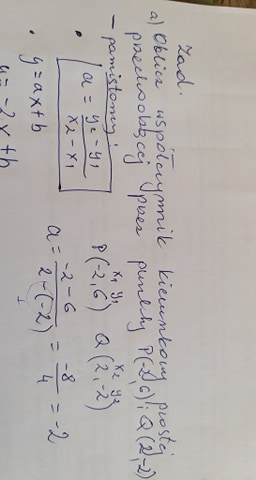 Zad.
a) Oblicz współczynnik kierunkowy prostej
przechodzącej przez punkty P(-2,6) i Q(2,-2)
- pamiętamy:
a = y₂-y₁ / x₂-x₁
x₁ y₁ x₂ y₂
P(-2,6) Q(2,-2)
a = -2-6 / 2-(-2) = -8 / 4 = -2
• y = ax+b
y = -2x+b